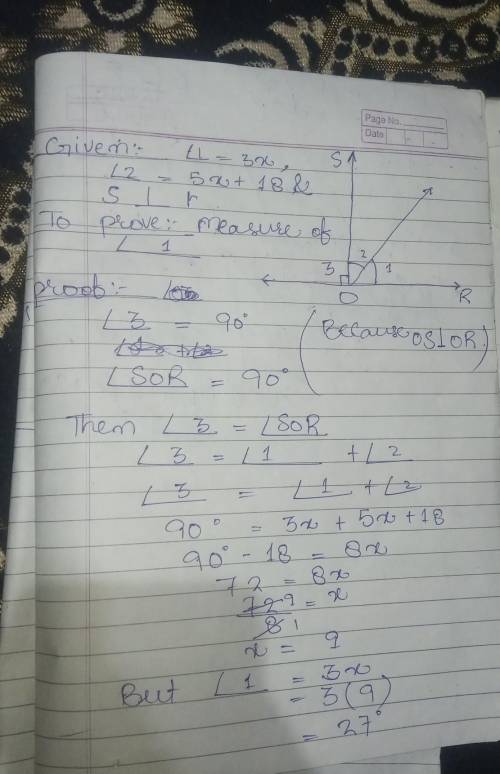 Page No.
Date
Given:- ∠1 = 3x,
∠2 = 5x + 18 &
S ⊥ r
To prove:- Measure of
∠1
S
2
3
1
O
R
proof:-
∠3 = 90° (Because OS⊥OR)
∠SOR = 90°
Then ∠3 = ∠SOR
∠3 = ∠1 + ∠2
∠3 = ∠1 + ∠2
90° = 3x + 5x + 18
90° - 18 = 8x
72 = 8x
72 9 = x
8 1
x = 9
But ∠1 = 3x
= 3(9)
= 27°